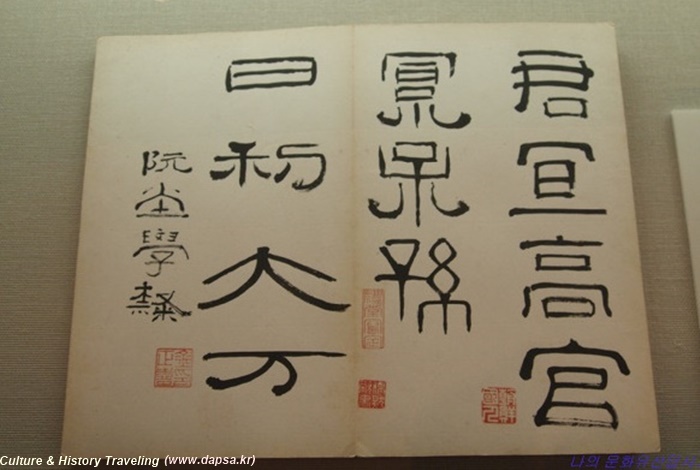 君宜高官
呆孫
日利大万
阮堂學隸
Culture & History Traveling (www.dapsa.kr)
나의